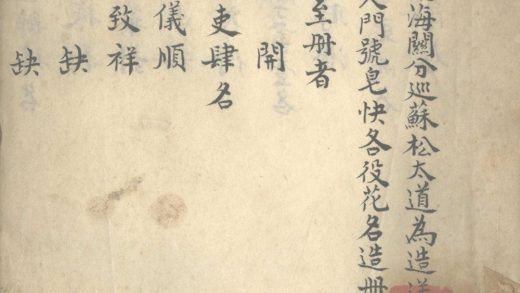 海關分巡蘇松太道為造送
大門號皂快各役花名造冊
至册者
開
吏肆名
儀順
致祥
缺
缺